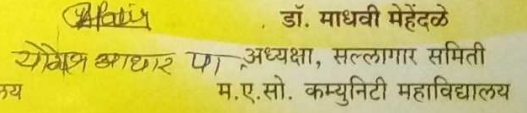 डॉ. माधवी मेहेंदळे
आधार
अध्यक्षा, सल्लागार समिती
म.ए.सो. कम्युनिटी महाविद्यालय